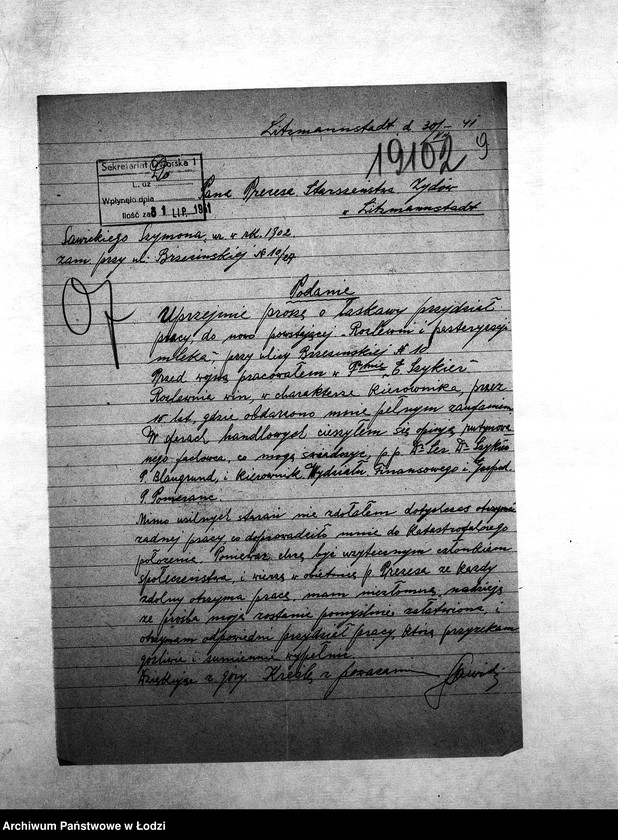 Litzmannstadt d 30/VII 41
19102
9
Sekretariat Dworska 1
L. dz
Wpłynęło dnia
Ilość zał. 31 LIP. 1941
Pana Prezesa Starszeństwa Żydów
w Litzmannstadt
Sawickiego Szymona, ur. w rk. 1902.
zam. przy ul. Brzezińskiej № 10/27
Podanie
Uprzejmie proszę o łaskawy przydział
pracy, do nowo powstającej „Rozlewni i pasteryzacji
mleka" przy ulicy Brzezińskiej № 10
Przed wojną pracowałem w firmie „E Szykier"
Rozlewnia win, w charakterze kierownika, przez
10 lat, gdzie obdarzono mnie pełnym zaufaniem
W sferach handlowych cieszyłem się opinją rutynowa
nego fachowca, co mogą świadczyć, p.p. Dr Dr Szykier
P. Blaugrund, i kierownik Wydziału Finansowego i Gospod.
P. Pomeranc.
Mimo usilnych starań nie zdołałem dotychczas otrzymać
żadnej pracy co doprowadziło mnie do katastrofalnego
położenia. Ponieważ chcę być użytecznym członkiem
społeczeństwa, i wierzę w obietnicę p. Prezesa że każdy
zdolny otrzyma pracę, mam niezłomną nadzieję
że prośba moja zostanie pomyślnie załatwiona, i
otrzymam odpowiedni przydział pracy, którą przyrzekam
gorliwie i sumiennie wypełnić.
Dziękuję z góry. Kreślę z poważaniem
Archiwum Państwowe w Łodzi